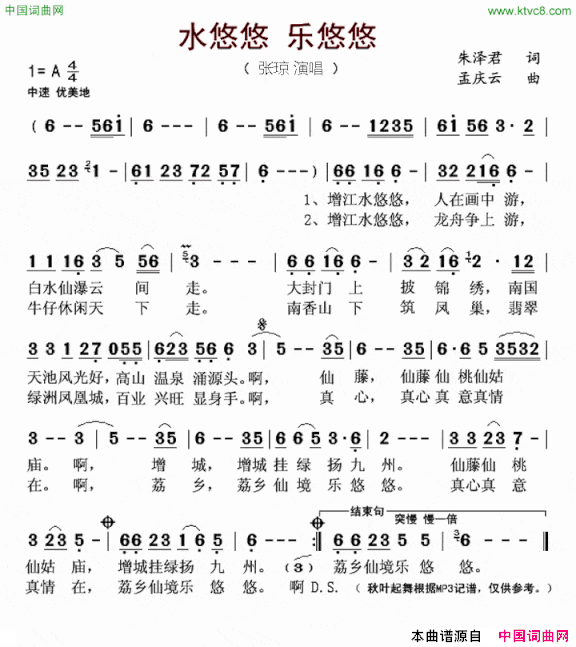 中国词曲网
www.ktvc8.com
水悠悠 乐悠悠
（张琼 演唱）
朱泽君 词
孟庆云 曲
1= A 4/4
中速 优美地
( 6 - - 561 | 6 - - - | 6 - - 6 - - 1235 | 61 65 3· 2 |
35 23 2 1 - | 61 23 72 57 | 6 - - - ) | 66 16 6 - | 32 216 6 - |
1、增江水悠悠， 人在画中 游，
2、增江水悠悠， 龙舟争上 游，
1 1 16 3 5 56 | 5 3 - - - | 6 6 16 1 6 | 3 32 16 2 - 23 |
白水仙瀑云 间 走。 大封门 上 披 锦 绣，南国
牛仔休闲天 下 走。 南香山 下 筑 凤 巢，翡翠
3 3 1 27 055 | 623 56 3 - | 3 5 - - 35 | 6 - 65 65 3532 |
天池风光好，高山 温泉 涌源头。啊， 仙 藤， 仙藤 仙 桃仙姑
绿洲凤凰城，百业 兴旺 显身手。啊， 真 心，真心 真 意真情
3 - - 3 | 5 - - 35 | 6 - 65 1 65 | 35 2 3·6 | 3 3 23 7 - |
庙。啊， 增 城， 增城 挂 绿 扬 九 州。 仙藤仙 桃
在。啊， 荔 乡，荔乡 仙 境 乐 悠 悠。 真心真 意
结束句
突慢 慢一倍
3 23 5 - | 66 23 1 6 5 | 6 - - (3) :| 66 23 5 5 | 3 6 - - - ‖
仙姑 庙， 增城挂绿扬 九 州。 荔乡仙乐悠 悠。
真情 在， 荔乡仙境乐 悠 悠。 啊 D.S. （秋叶起舞根据MP3记谱，仅供参考。）
本曲谱源自 中国词曲网